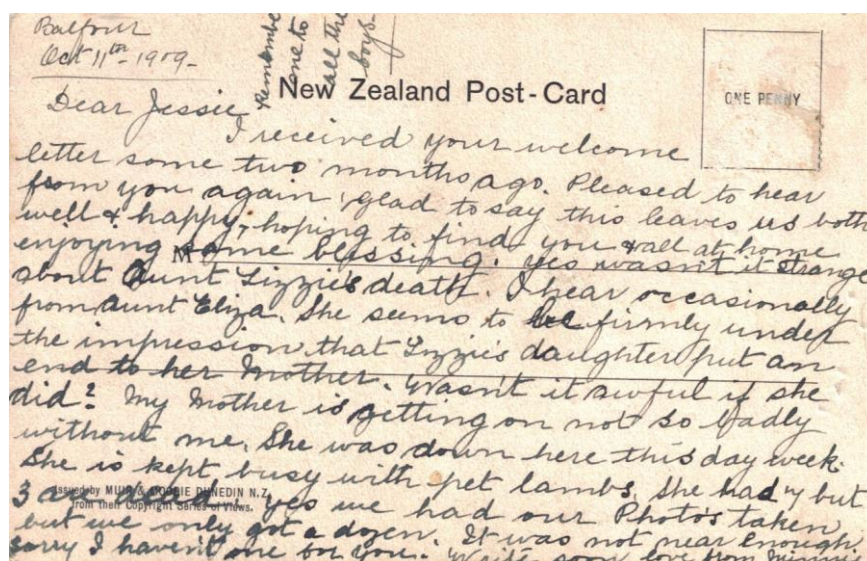 Balfour
Oct 11th - 1909 -
Remember
me to
all the
boys.
New Zealand Post-Card
ONE PENNY
Dear Jessie
I received your welcome
letter some two months ago. Pleased to hear
from you again, glad to say this leaves us both
well & happy, hoping to find you & all at home
enjoying same blessing. Yes wasn't it strange
about Aunt Lizzie's death. I hear occasionally
from Aunt Eliza. She seems to be firmly under
the impression that Lizzie's daughter put an
end to her Mother. Wasn't it awful if she
did? My Mother is getting on not so badly
without me. She was down here this day week.
She is kept busy with pet lambs. She had 7 but
3 are dead. Yes we had our Photo's taken
Issued by MUIR & MOODIE DUNEDIN N.Z.
from their Copyright Series of Views.
but we only got a dozen. It was not near enough.
sorry I haven't one for you. Write soon love from Minnie